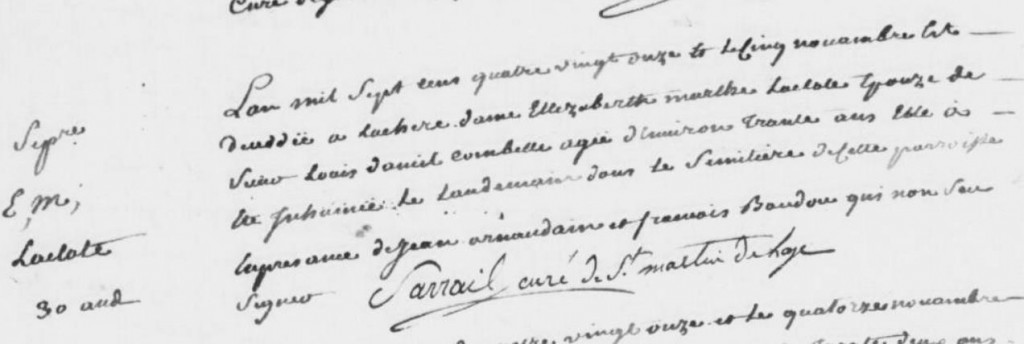 Curé
Lan mil Sept cens quatre vingt onze et le Cinq nouambre Est
Sepre
deceddée a Lachere dame Ellezaberth marthe Laclote Epouze de
Sieur Louis daniel Combelle agée denuiron trante ans Elle à
E, M,
Eté Inhumée Le Landemain dans Le Semitière de Cette parroisse
Laclote
Enpresance de Jean arnaudain et francois Baudou qui non Seu
30 and
Signer Sarrail curé de St martin de Laye
vingt onze et Le quatorze nouambre
deux ans